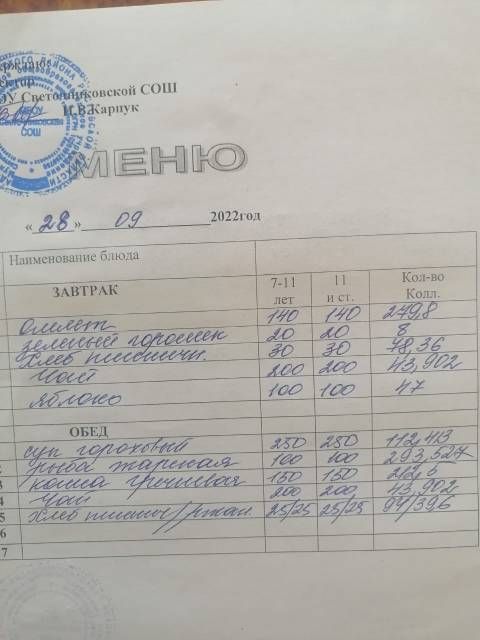 ОУ Светочниковской СОШ
И.В.Карпук
СОШ
МЕНЮ
« 28 » 09 2022год
Наименование блюда
ЗАВТРАК 7-11 лет 11 и ст. Кол-во Колл.
омлет 140 140 279,8
зеленый горошек 20 20 8
хлеб пшеничн 30 30 78,36
Чай 200 200 43,902
яблоко 100 100 47
ОБЕД
суп гороховый 250 250 112,413
2 рыба жареная 100 100 293,527
3 каша гречневая 150 150 212,5
4 Чай 200 200 43,902
5 Хлеб пшенич//ржан 25/25 25/25 94/39,6
6
7